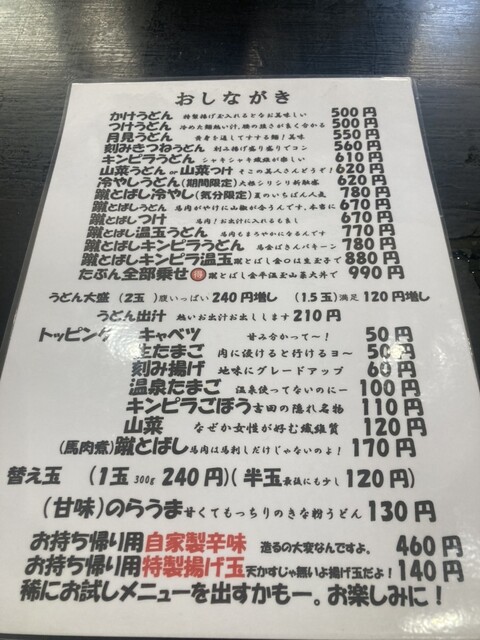 おしながき
かけうどん 特製揚げ玉入れるとなお美味しい 500円
つけうどん 冷めた麺熱い汁、腰の強さが良く分かる 500円
月見うどん 黄身を通してすする麺!美味 550円
刻みきつねうどん 刻み揚げ盛り盛りでコン 560円
キンピラうどん シャキシャキ繊維が楽しい 610円
山菜うどん or 山菜つけ そこの美人さんどうぞ! 620円
冷やしうどん(期間限定) 大根シリシリ新触感 620円
蹴とばし冷やし(気分限定) 夏のいちばん人気 780円
蹴とばしうどん 馬肉がやけに山椒が合うんです。本当に 670円
蹴とばしつけ 馬肉!お出汁に入れるも良し 670円
蹴とばし温玉うどん 馬肉もまろやかになるんです 770円
蹴とばしキンピラうどん 馬金ぱきんパキーン 780円
蹴とばしキンピラ温玉 蹴とばし金〇は生玉子で 880円
たぶん全部乗せ 得 蹴とばし金平温玉山菜大丼で 990円
うどん大盛 (2玉 )腹いっぱい 240円増し (1.5玉)満足 120円増し
うどん出汁 熱いお出汁お出しします 210円
トッピング キャベツ 甘み分かって~! 50円
生たまご 肉に漬けると行けるヨ~ 50円
刻み揚げ 地味にグレードアップ 60円
温泉たまご 温泉使ってないのにー 100円
キンピラごぼう 吉田の隠れ名物 110円
山菜 なぜか女性が好む繊維質 120円
(馬肉煮)蹴とばし 馬肉は馬刺しだけじゃないのよ! 170円
替え玉 (1玉 300g 240円)(半玉 最後にも少し 120円)
(甘味)のらうま 甘くてもっちりのきな粉うどん 130円
お持ち帰り用自家製辛味 造るの大変なんですよ。 460円
お持ち帰り用特製揚げ玉 天かすじゃ無いよ揚げ玉だよ! 140円
稀にお試しメニューを出すかもー。お楽しみに!